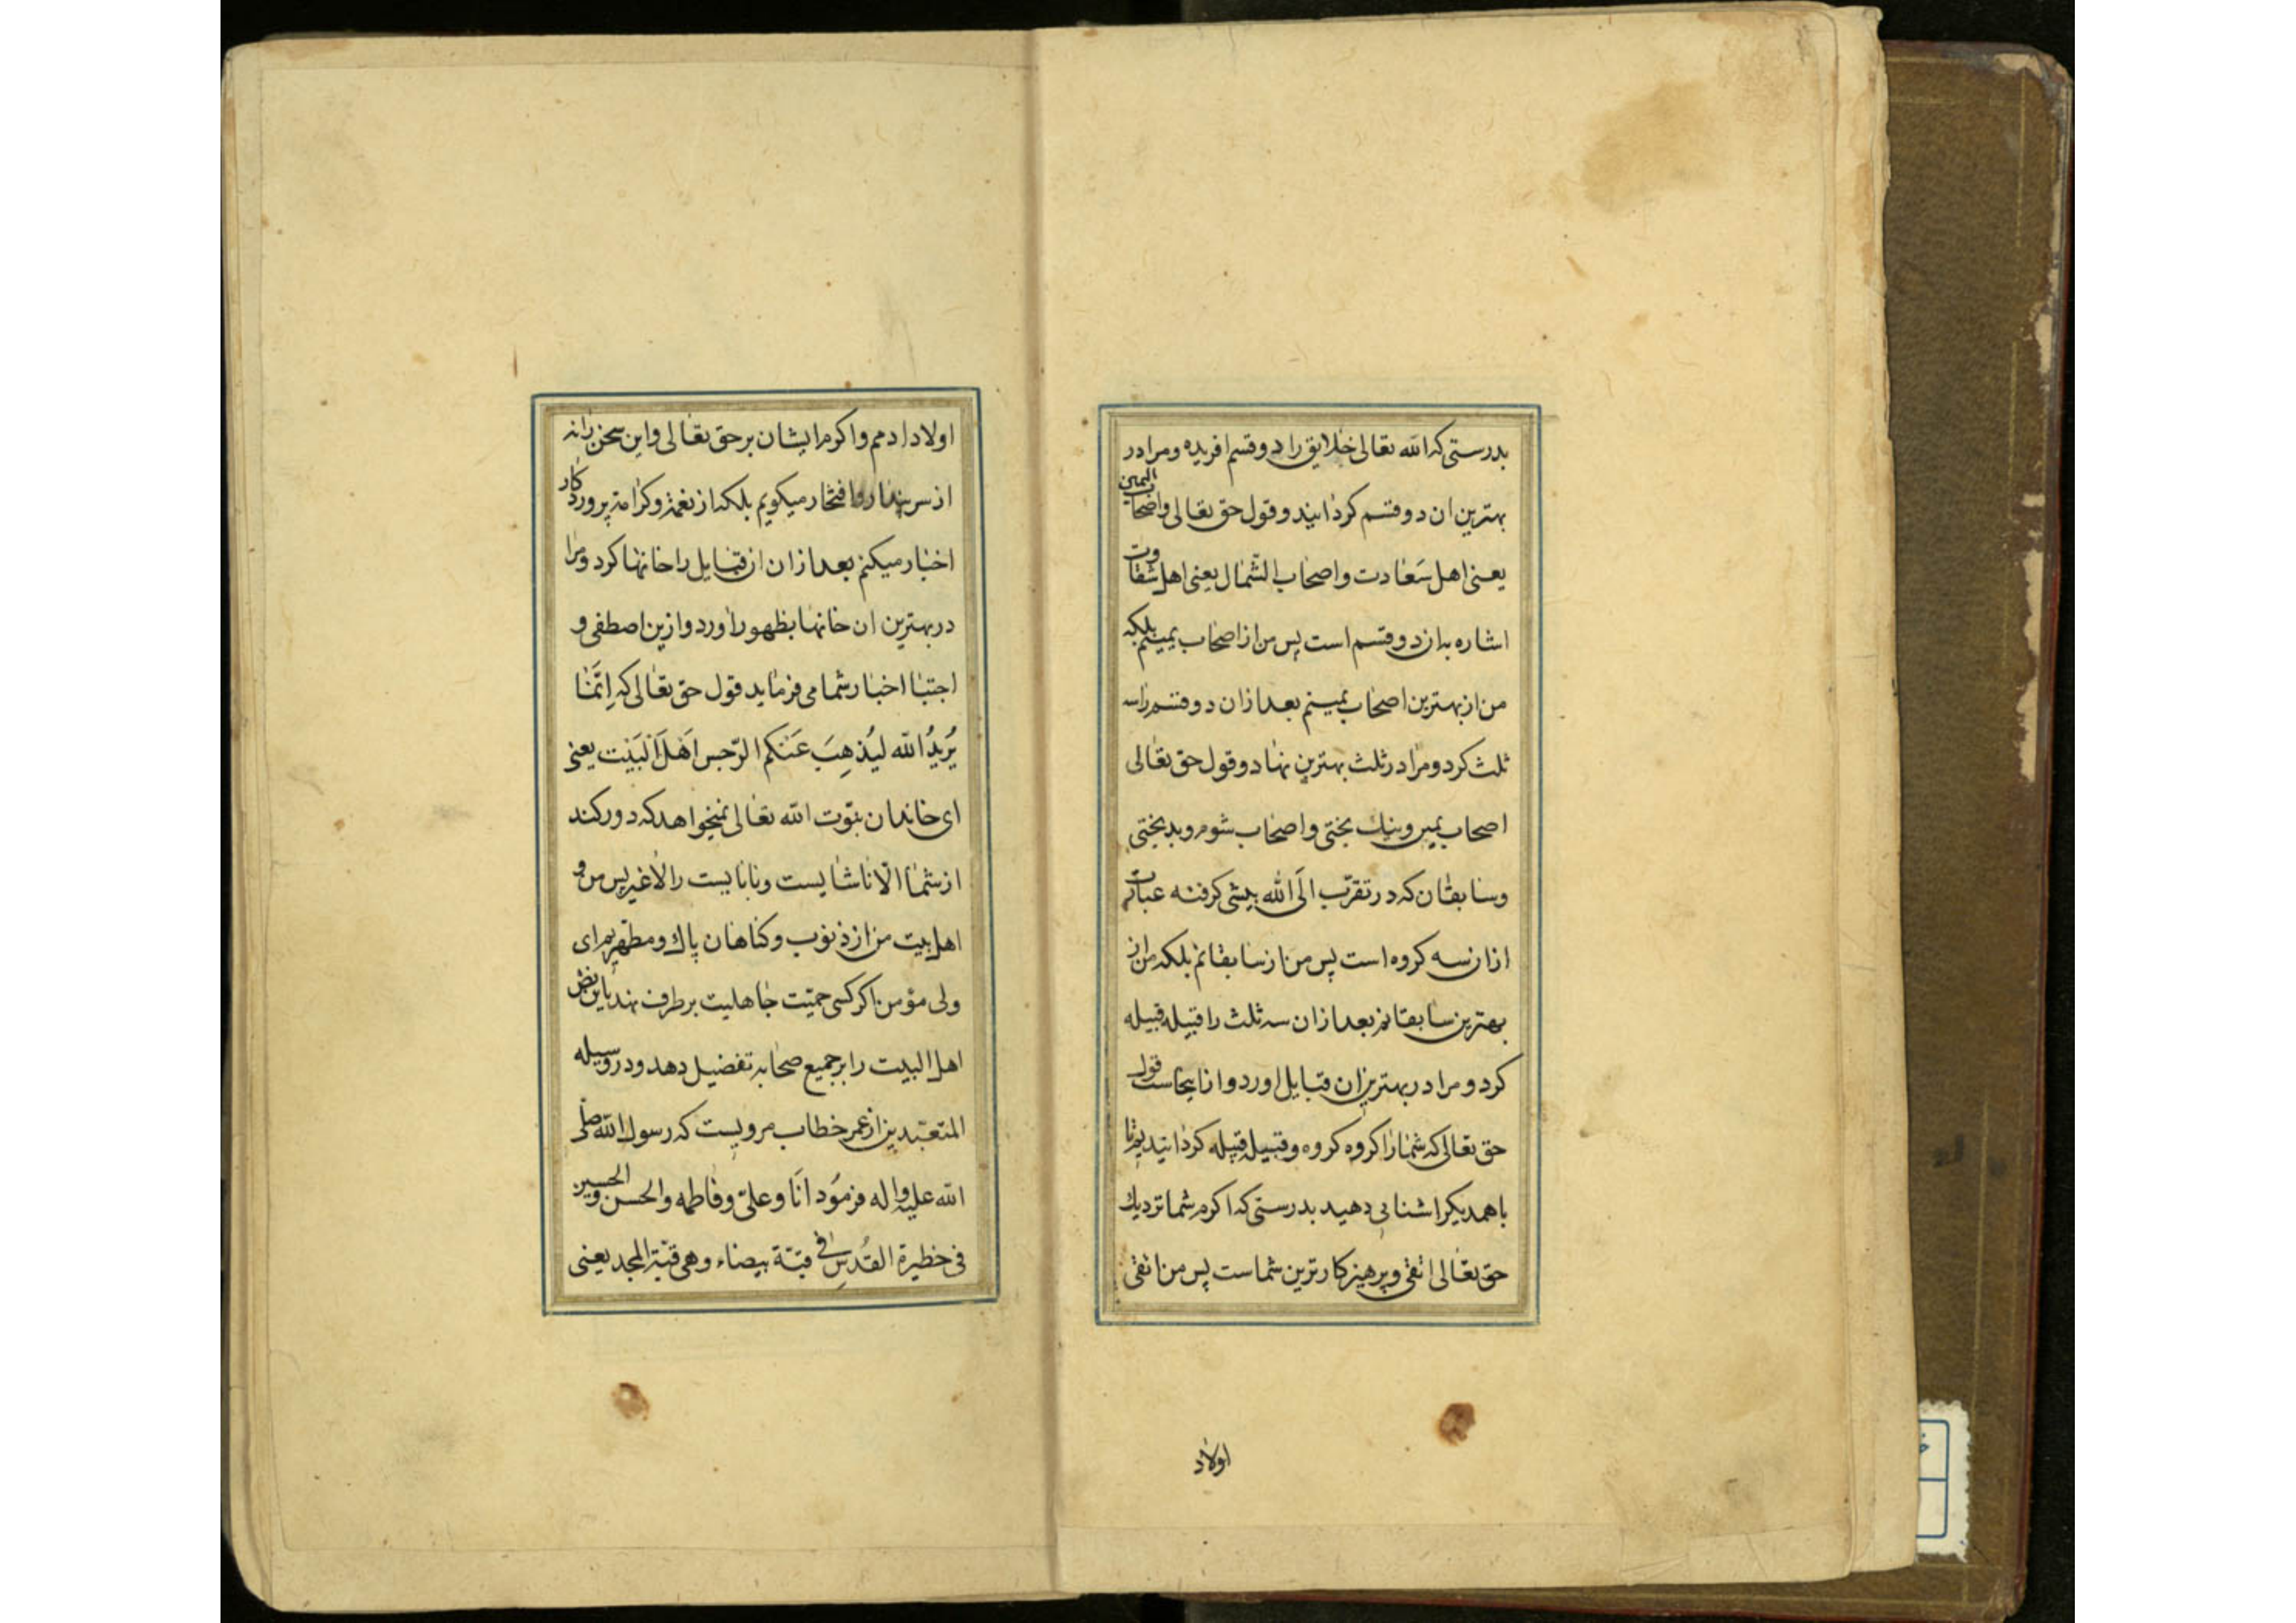 بدرستی که الله تعالی خلایق را دو قسم افریده و مرا در
بهترین ان دو قسم کردانیند و قول حق تعالی و اصحاب الیمین
یعنی اهل سعادت و اصحاب الشمال یعنی اهل شقاوت
اشاره بدان دو قسم است پس من از اصحاب یمینم بلکه
من از بهترین اصحاب یمینم بعد ازان دو قسم را سه
ثلث کرد و مرا در ثلث بهترین نهاد و قول حق تعالی
اصحاب یمین و نیك بختی و اصحاب شوم و بد بختی
و سابقان که در تقرّب الَی الله پیشی کرفته عبارت
ازان سه کروه است پس من از سابقانم بلکه من از
بهترین سابقانم بعد ازان سه ثلث را قبیله قبیله
کرد و مرا در بهترین ان قبایل اورد و ازاینجاست قول
حق تعالی که شما را کروه کروه و قبیله قبیله کردانید یم تا
با همدیکر اشنایی دهید بدرستی که اکرم شما نزدیك
حق تعالی اتقی و پرهیزکار ترین شماست پس من اتقی
اولاد
اولاد ادمم و اکرم ایشان بر حق تعالی و این سخن را نه
از سر پندار و افتخار میکویم بلکه از نعمة و کرامة پروردکار
اخبار میکنم بعد ازان از قبایل را خانها کرد و مرا
در بهترین ان خانها بظهور اورد و ازین اصطفی و
اجتبا اخبار شما می فرماید قول حق تعالی که اِنَّمَا
یُرِیدُ الله لیُذهِبَ عَنکم الرّجس اَهلَ اَلبَیت یعنی
ای خاندان نبوّت الله تعالی نمیخواهد که دور کند
از شما الّا ناشایست و نابایست را لا غیر پس من و
اهل بیت من از ذنوب و کناهان پاك و مطهریم ای
ولی مؤمن اکر کسی حمیّت جاهلیت بر طرف نهد باین نص
اهل البیت را بر جمیع صحابه تفضیل دهد و در وسیله
المتعبّدین از عمر خطاب مرویست که رسول الله صلی
الله علیه و اله فرمود اَنَا و علیّ و فاطمه و الحسن و الحسین
فی حظیرة القُدسِ فی قبّة بیضاء و هی قبّة المجد یعنی